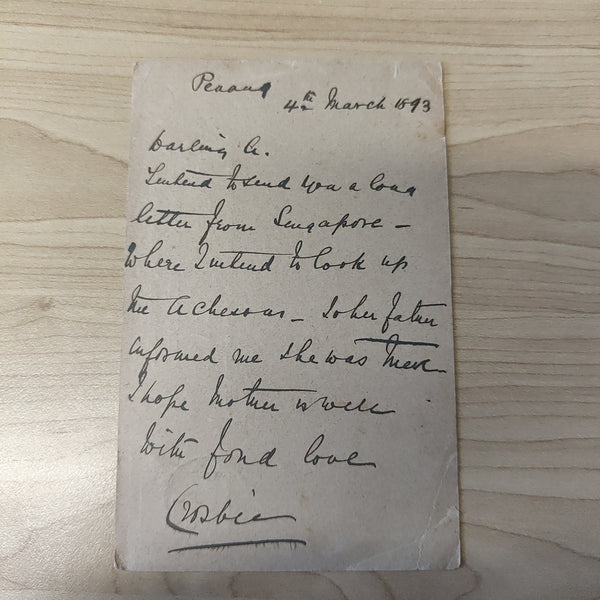 Penang
4th March 1893
Darling G.
I intend to send you a long
letter from Singapore –
Where I intend to look up
the Achesons –  her father
informed me she was there
I hope Mother is well
With fond love
Crosbie